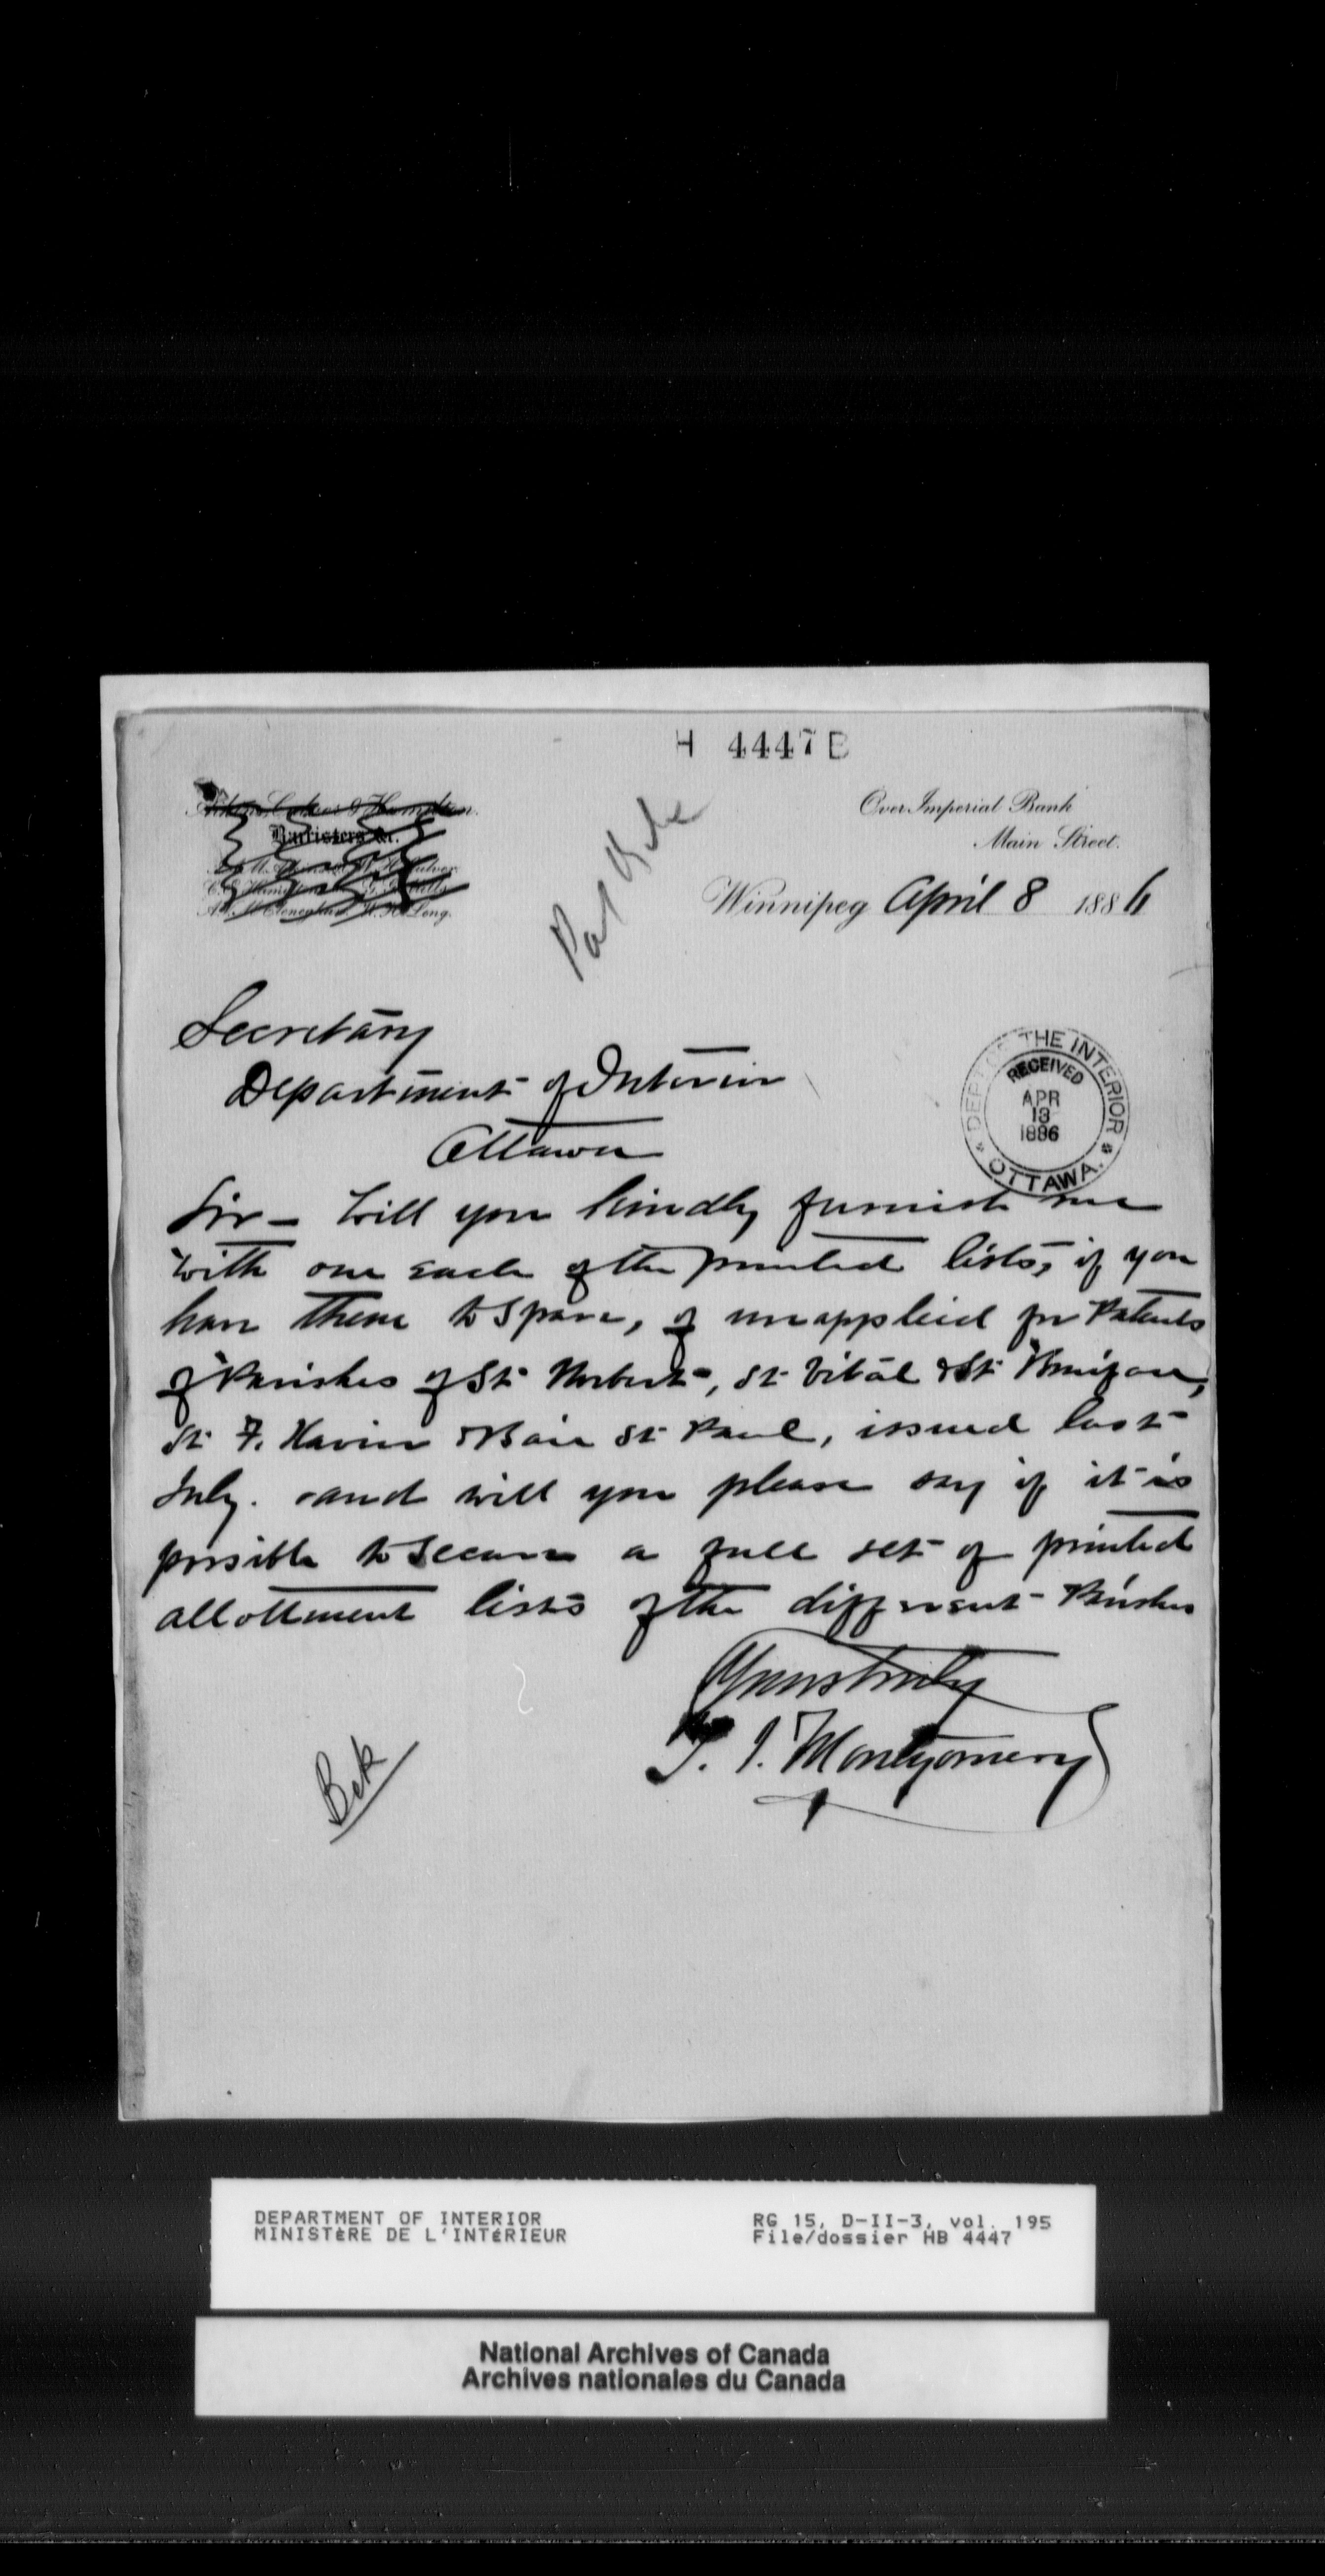 H 4447 B
Aikins, Culver & Hamilton.
Barristers &c.
Over Imperial Bank
Main Street.
Winnipeg April 8 1886
Secretary
Department of Interior
Ottawa
DEPT OF THE INTERIOR
RECEIVED
APR
13
1886
OTTAWA.
Sir - Will you kindly furnish me
with one each of the printed lists, if you
have them to spare, of unapplied for Patents
of Parishes of St Norbert, St Vital & St Boniface,
St F. Xavier & Baie St Paul, issued last
July. and will you please say if it is
possible to secure a full set of printed
allottment lists of the different Parishes
Yours truly
Montgomery
DEPARTMENT OF INTERIOR
MINISTÈRE DE L'INTÉRIEUR
RG 15, D-II-3, vol. 195
File/dossier HB 4447
National Archives of Canada
Archives nationales du Canada